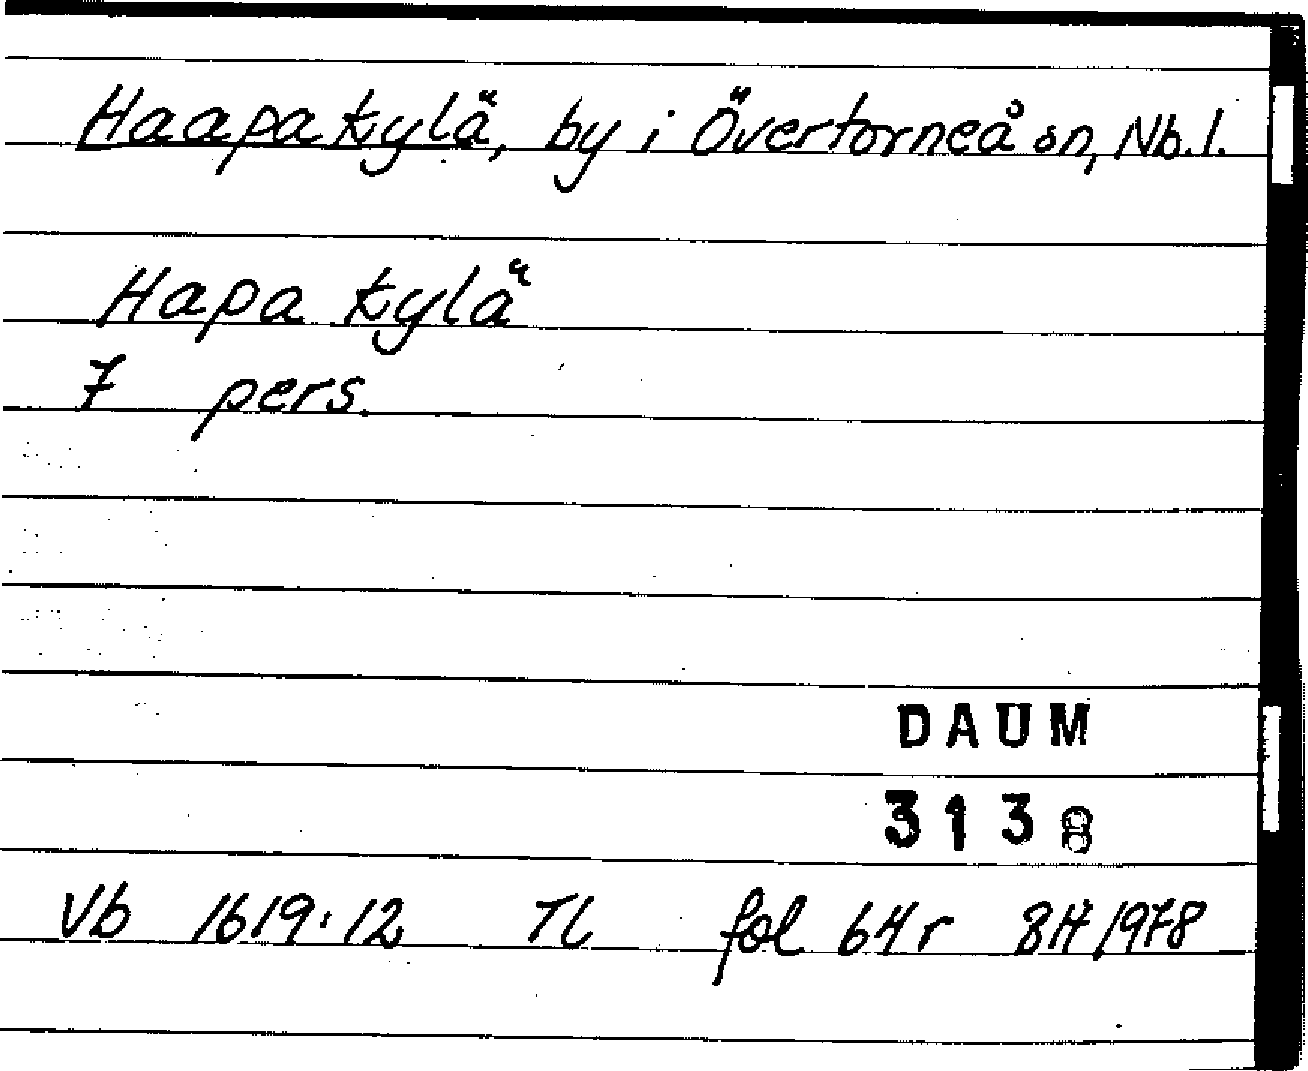 Haapakylä, by i Övertorneå sn, Nb.l.
Hapa kylä
7 pers.
DAUM
3138
Vb 1619:12 TL fol 64r SH 1978